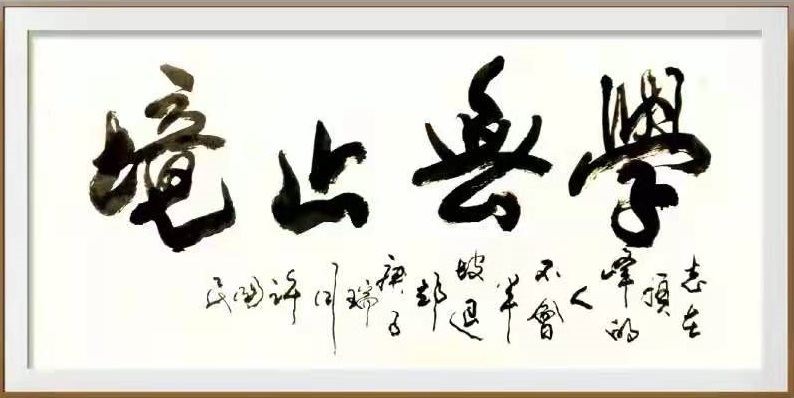 學無止境
志在頂峰的人不會半坡退却
庚子瑞川許國民